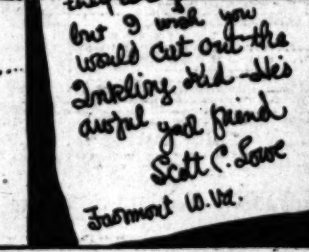 but I wish you
would cut out the
Inkling Kid - He's
awful your friend
Scott C. Lowe
Fasmont W. Va.